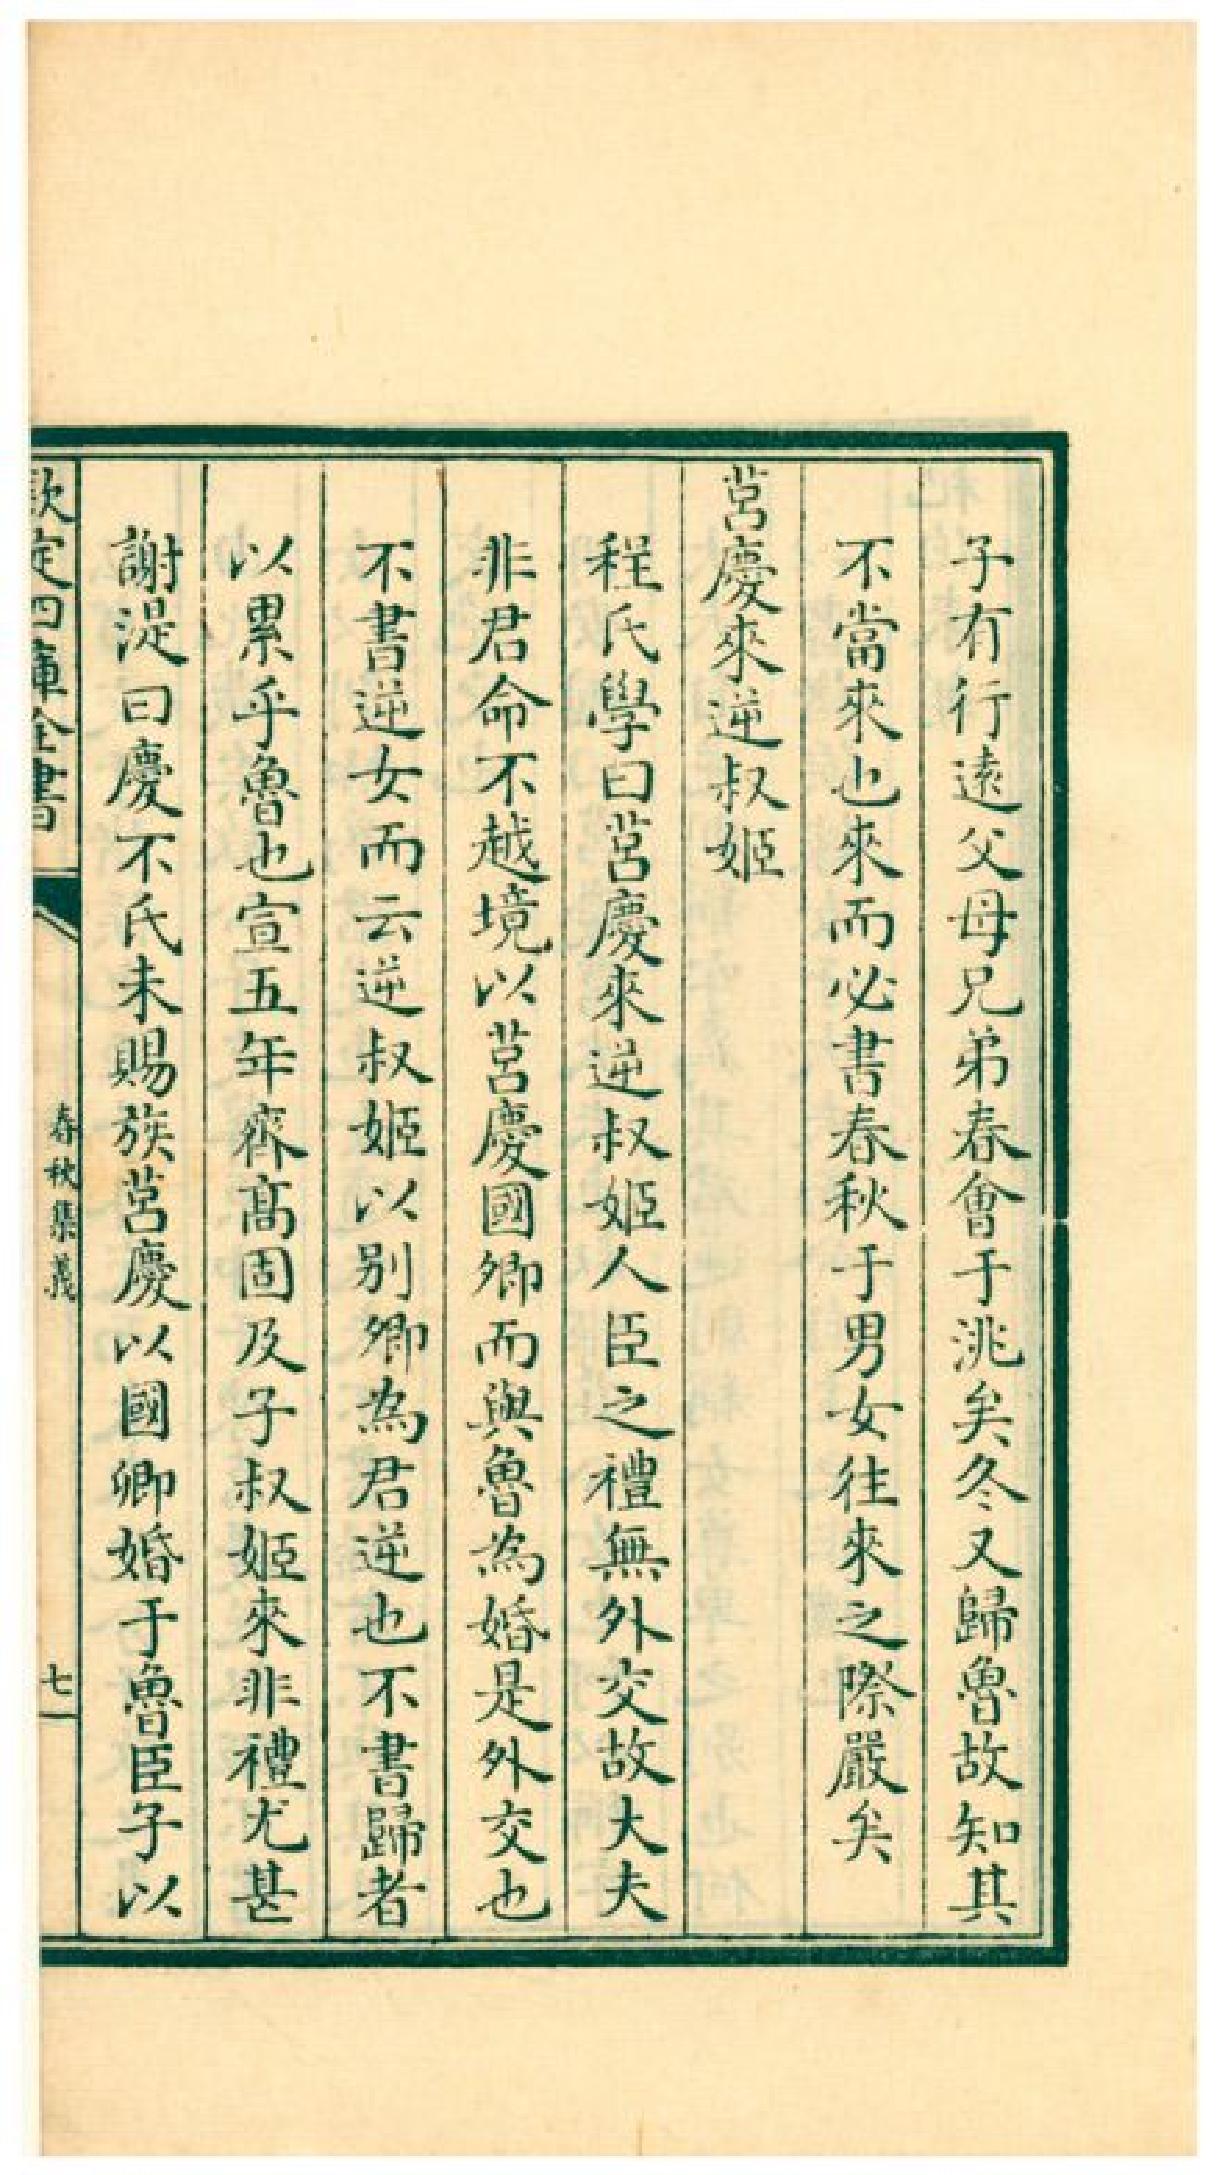 子有行遠父母兄弟春會于洮矣冬又歸魯故知其
不當來也來而必書春秋于男女往來之際嚴矣
莒慶來逆叔姬
程氏學曰莒慶來逆叔姬人臣之禮無外交故大夫
非君命不越境以莒慶國卿而與魯為婚是外交也
不書逆女而云逆叔姬以別卿為君逆也不書歸者
以累乎魯也宣五年齊高固及子叔姬來非禮尤甚
謝湜曰慶不氏未賜族莒慶以國卿婚于魯臣子以
欽定四庫全書
春秋集義
七